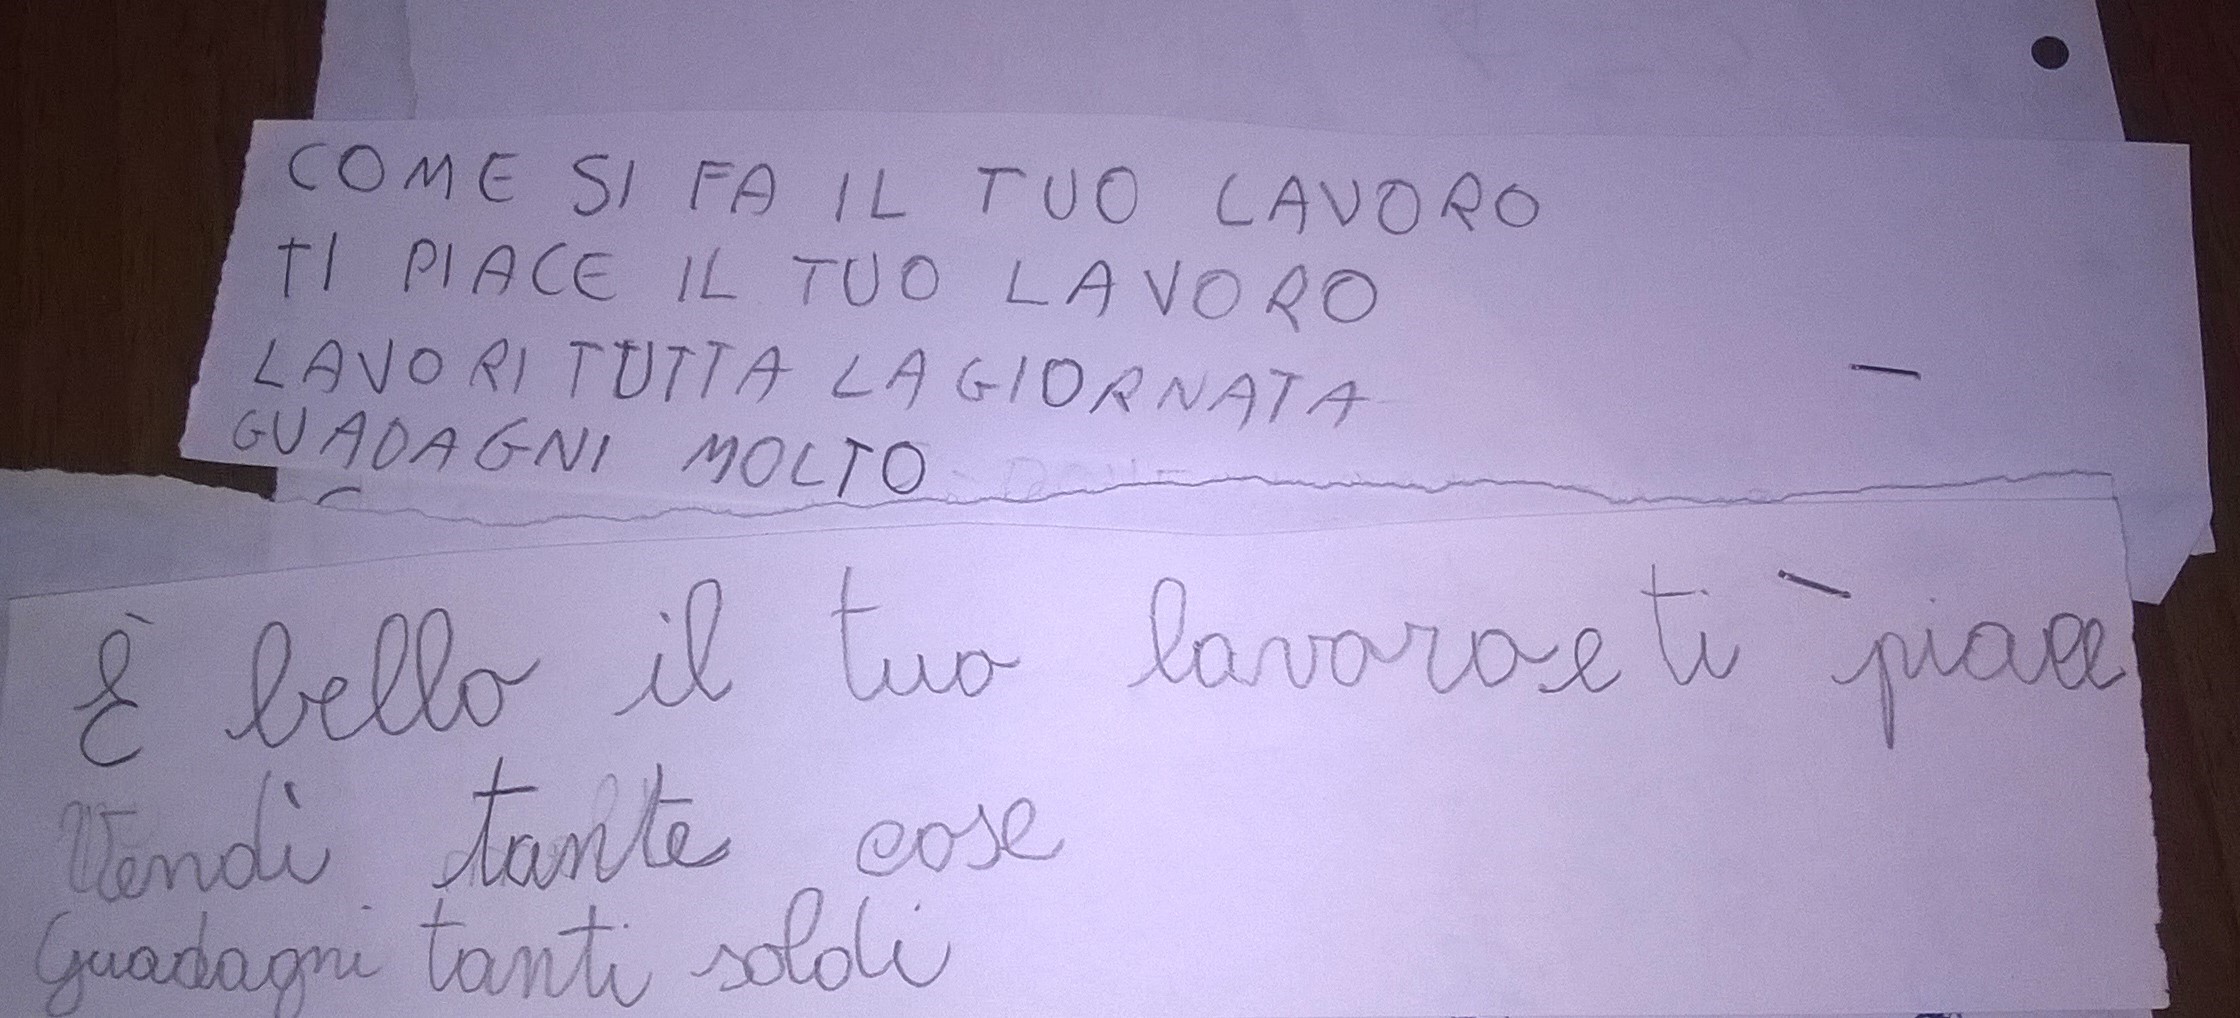 COME SI FA IL TUO LAVORO
TI PIACE IL TUO LAVORO
LAVORI TUTTA LA GIORNATA
GUADAGNI MOLTO
È bello il tuo lavoro e ti piace
Vendi tante cose
Guadagni tanti soldi